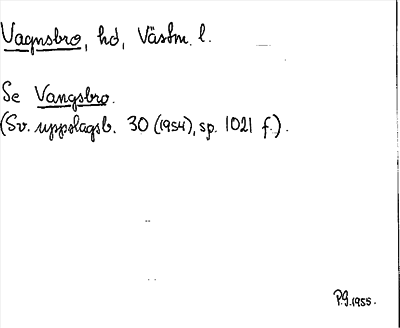 Vagnsbro, hd, Västm. l.
Se Vangsbro.
(Sv. uppslagsb. 30 (1954), sp. 1021 f.).
P.G. 1955.